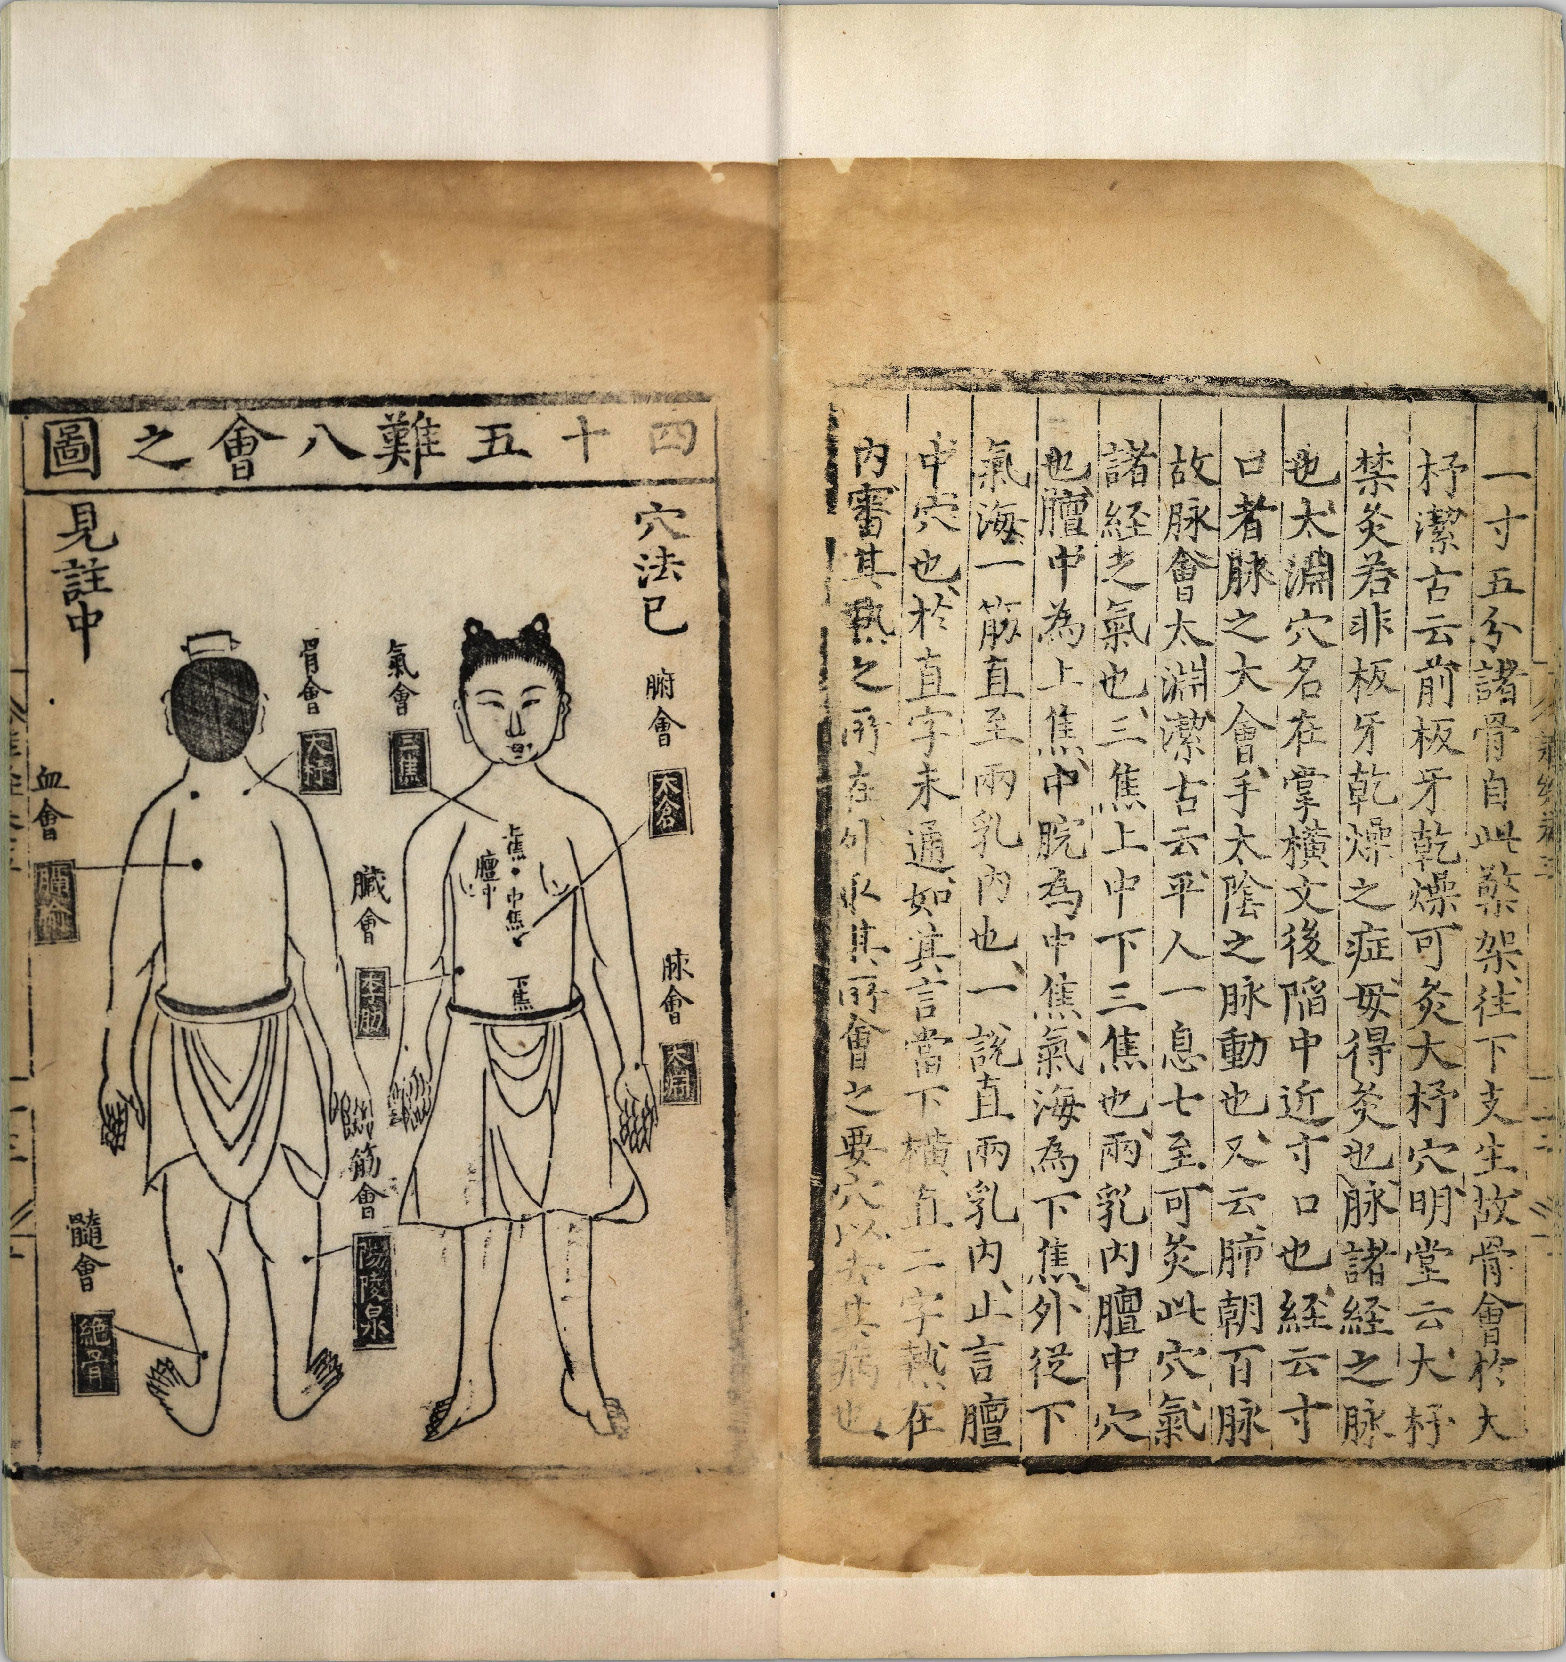 一寸五分諸骨自此檠架往下支生故骨會於大
杼潔古云前板牙乾燥可灸大杼穴明堂云大杼
禁灸若非板牙乾燥之症毋得灸也脉諸經之脉
也太淵穴名在掌橫文後陷中近寸口也經云寸
口者脉之大會手太陰之脉動也又云肺朝百脉
故脉會太淵潔古云平人一息七至可灸此穴氣
諸経之氣也三焦上中下三焦也兩乳內膻中穴
也膻中為上焦中脘為中焦氣海為下焦外從下
氣海一筋直至兩乳內也一說直兩乳內止言膻
中穴也於直字未通如其言當下橫直二字熱在
內審其熱之所在外取其所會之要穴以去其病也
四十五難八會之圖
穴法已
見註中
腑會
太倉
脉會
太淵
氣會
三焦
上焦
膻中
中焦
下焦
臟會
季肋
筋會
陽陵泉
骨會
大杼
血會
膈俞
髓會
絶骨